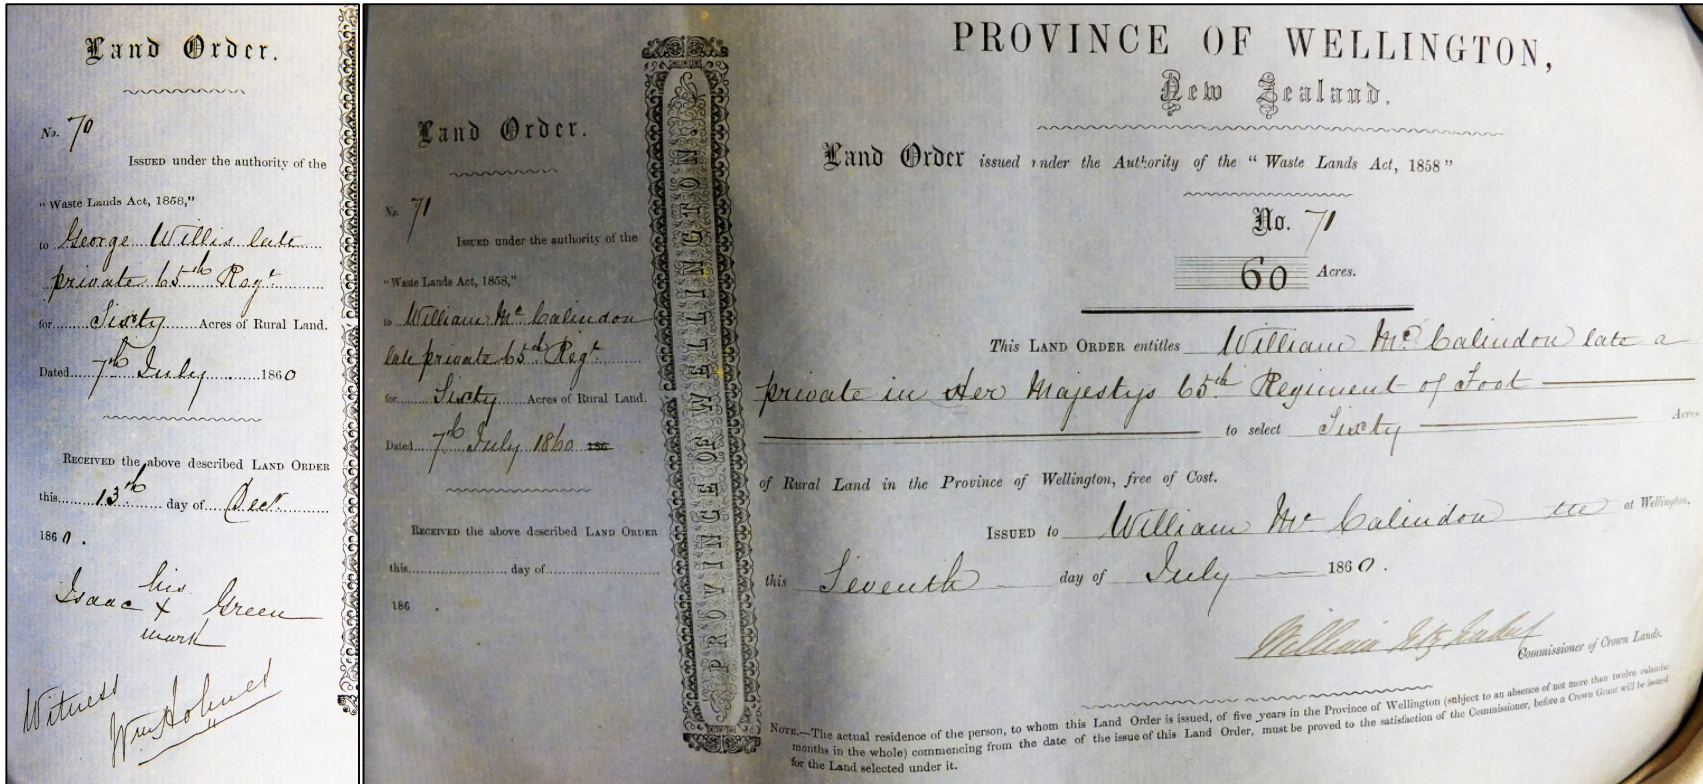 Land Order.
No. 70
ISSUED under the authority of the
"Waste Lands Act, 1858,"
to George Willis late
private 65th Regt
for Sixty Acres of Rural Land.
Dated 7th July 1860
RECEIVED the above described LAND ORDER
this 13th day of Decr
1860.
his
Isaac X Green
mark
Witness
Wm Holmes
Land Order.
No. 71
ISSUED under the authority of the
"Waste Lands Act, 1858,"
to William Mc Calindon
late private 65th Regt
for Sixty Acres of Rural Land.
Dated 7th July 1860 186
RECEIVED the above described LAND ORDER
this day of
186 .
PROVINCE OF WELLINGTON.
PROVINCE OF WELLINGTON,
New Zealand.
Land Order issued under the Authority of the "Waste Lands Act, 1858"
No. 71
60 Acres.
This LAND ORDER entitles William Mc Calindon late a
private in Her Majestys 65th Regiment of Foot
to select Sixty Acres
of Rural Land in the Province of Wellington, free of Cost.
ISSUED to William Mc Calindon at Wellington,
this Seventh day of July 1860.
William Fitzherbert
Commissioner of Crown Lands.
NOTE.—The actual residence of the person, to whom this Land Order is issued, of five years in the Province of Wellington (subject to an absence of not more than twelve calendar
months in the whole) commencing from the date of the issue of this Land Order, must be proved to the satisfaction of the Commissioner, before a Crown Grant will be issued
for the Land selected under it.